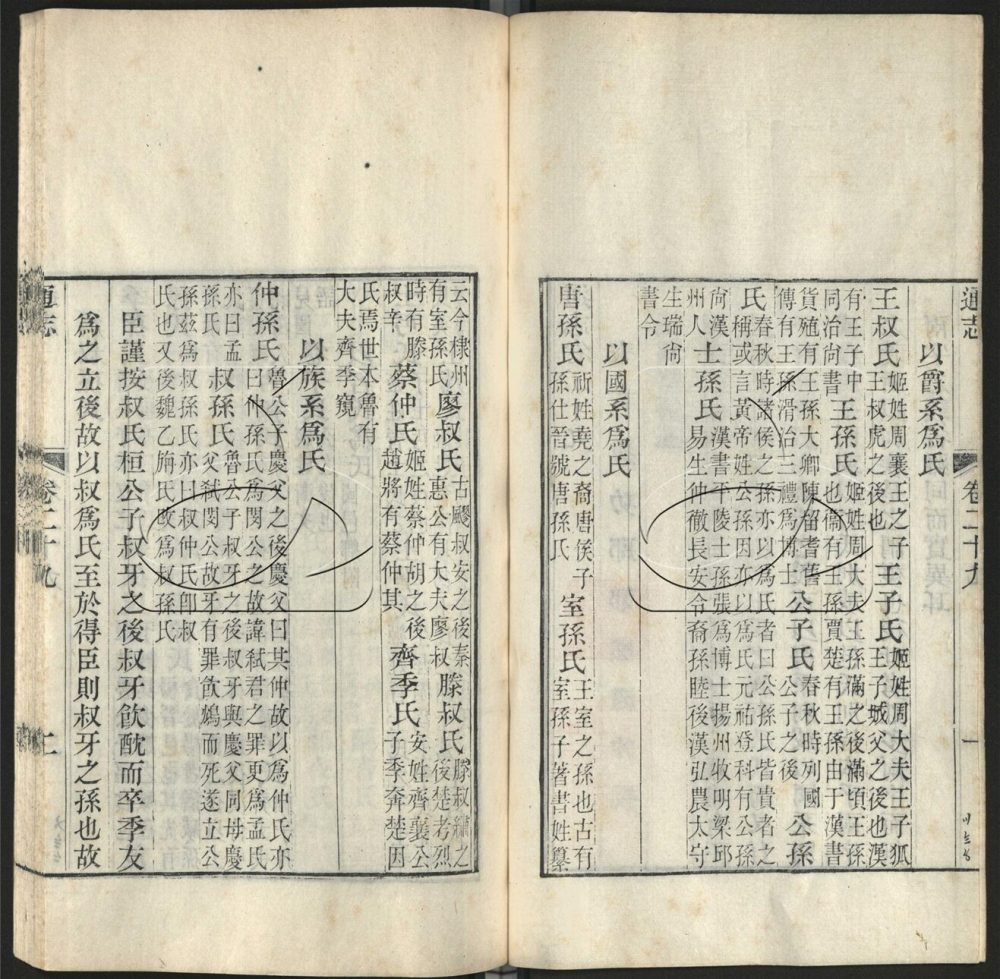 通志 卷二十九 一
以爵系為氏
王叔氏姬姓周襄王之子王叔虎之後也 王子氏姬姓周大夫王子狐王子城父之後也漢
有王子中同治尚書 王孫氏姬姓周大夫王孫滿之後滿頃王孫也衞有王孫賈楚有王孫由于漢書
貨殖有王孫大卿陳留耆舊傳有王孫滑治三禮為博士 公子氏春秋時列國公子之後 公孫
氏春秋時諸侯之孫亦以為氏者曰公孫氏皆貴者之稱或言黃帝姓公孫因亦以為氏元祐登科有公孫
尚漢州人 士孫氏漢書平陵士孫張為博士揚州牧明梁邱易生仲徹長安令裔孫睦後漢弘農太守
生瑞尚書令
以國系為氏
唐孫氏祈姓堯之裔唐侯子孫仕晉號唐孫氏 室孫氏王室之孫也古有室孫子著書姓纂
云今棣州有室孫氏 廖叔氏古颼叔安之後秦惠公有大夫廖叔 滕叔氏滕叔繡之後楚考烈
時有滕叔辛 蔡仲氏姬姓蔡仲胡之後趙將有蔡仲其 齊季氏安姓齊襄公子季奔楚因
氏焉世本魯有大夫齊季窺
以族系為氏
仲孫氏魯公子慶父之後慶父曰其仲故以為仲氏亦曰仲孫氏為閔公之故諱弒君之罪更為孟氏
亦曰孟孫氏 叔孫氏魯公子叔牙之後叔牙與慶父同母慶父弒閔公故牙有罪飲鴆而死遂立公
孫茲為叔孫氏亦曰叔仲氏即叔氏也又後魏乙旃氏改為叔孫氏
臣謹按叔氏桓公子叔牙之後叔牙飲酖而卒季友
為之立後故以叔為氏至於得臣則叔牙之孫也故
通志 卷二十九 二